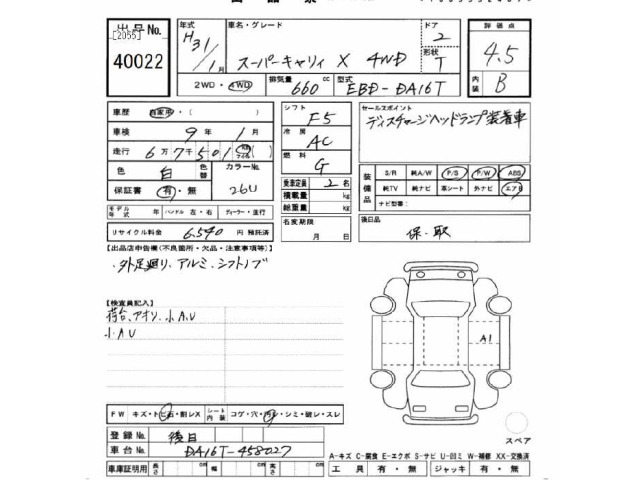 出品票
出品号No. [2055] 40022
年式 H31/1月
車名・グレード スーパーキャリィ X 4WD
ドア 2 形状 T
評価点 4.5
内装 B
2WD・4WD 排気量 660 cc 型式 EBD-DA16T
車歴 自家用・( )
シフト F5
セールスポイント
ディスチャージヘッドランプ装着車
車検 9年 1月
冷房 AC
走行 6万7千501
燃料 G
色 白 色替 カラーNo. 26U
乗車定員 2 名
積載量 kg
総重量 kg
装備品 S/R 純A/W P/S P/W ABS
純TV 純ナビ 革シート 外ナビ エアB
ナビ型番:
保証書 有・無
モデル年式 年 ハンドル 左・右 ディーラー・並行
名変期限 月 日
後日品
保・取
リサイクル料金 6,540 円 預託済
【出品店申告欄(不良箇所・欠品・注意事項等)】
・外足廻り、アルミ、シフトノブ
【検査員記入】
荷台、アオリ、小A、U
小A U
A1
FW キズ・トビ石・割レX シート内張 コゲ・穴・汚レ・シミ・破レ・スレ
登録No. 後日
車台No. DA16T-458027
スペア
A-キズ C-腐食 E-エクボ S-サビ U-凹ミ W-補修 XX-交換済
車庫証明用 長さ cm 幅 cm 高さ cm
工具 有・無 ジャッキ 有・無